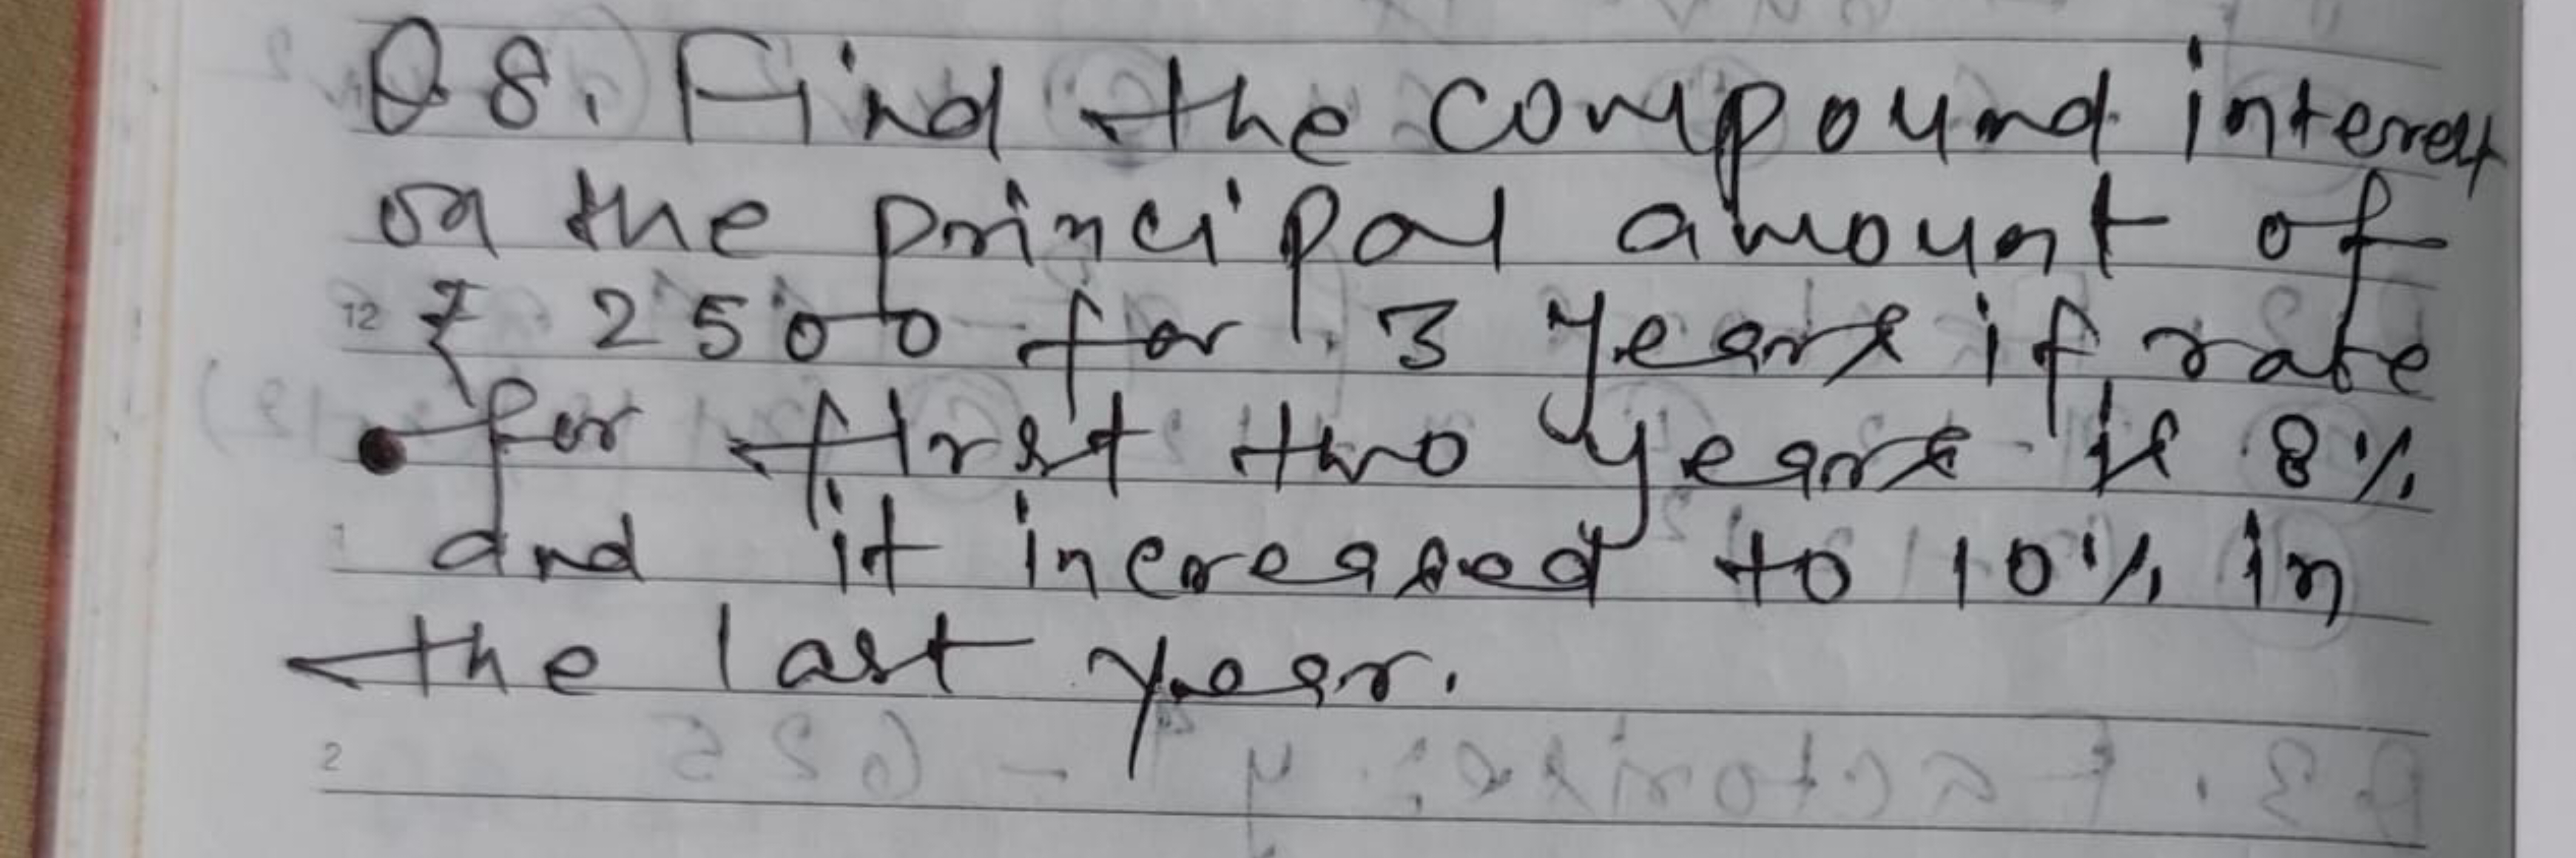 Q8. Find the compound interest
on the principal amount of
12 ₹ 2500 for 3 years if rate
for first two years is 8%
1 and it increased to 10% in
the last year.
2